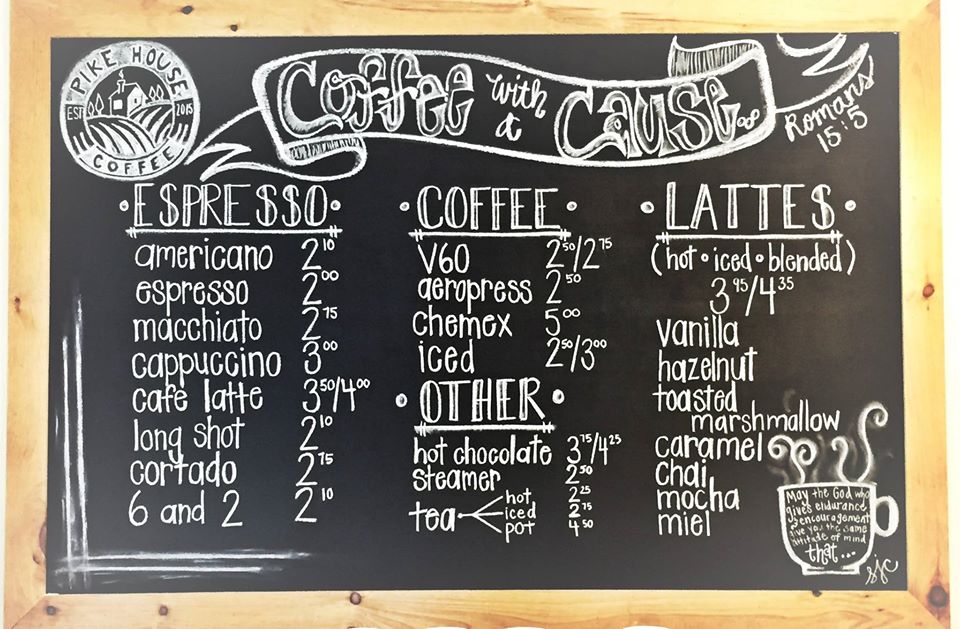 PIKE HOUSE
EST 2015
COFFEE
Coffee with a Cause
Romans
15:5
ESPRESSO
americano 2 10
espresso 2 00
macchiato 2 75
cappuccino 3 00
cafe latte 3 50/4 00
long shot 2 10
cortado 2 75
6 and 2 2 10
COFFEE
V60 2 50/2 75
aeropress 2 50
chemex 5 00
iced 2 50/3 00
OTHER
hot chocolate 3 75/4 25
steamer 2 50
tea
hot 2 25
iced 2 75
pot 4 50
LATTES
(hot • iced • blended)
3 95/4 35
vanilla
hazelnut
toasted
marshmallow
caramel
chai
mocha
miel
May the God who
gives endurance
& encouragement
give you the same
attitude of mind
that...
sjc